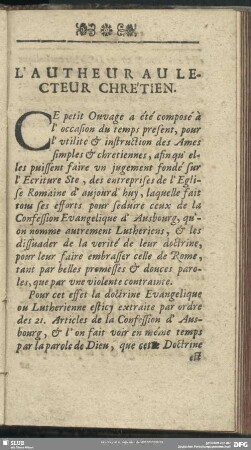 L'AUTHEUR AU LE-
CTEUR CHRETIEN.
CE petit Ouvage a été composé à
l' occasion du temps present, pour
l' vtilité & instruction des Ames
simples & chretiennes, afin qu' el-
les puissent faire vn jugement fondé sur
l' Ecriture Ste, des entreprises de l' Egli-
se Romaine d' aujourd' huy, laquelle fait
tous ses efforts pour seduire ceux de la
Confession Evangelique d' Ausbourg, qu'-
on nomme autrement Lutheriens, & les
dissuader de la verité de leur doctrine,
pour leur faire embrasser celle de Rome,
tant par belles promesses & douces paro-
les, que par vne violente contrainte.
Pour cet effet la doctrine Evangelique
ou Lutherienne est icy extraite par ordre
des 21. Articles de la Confession d' Aus-
bourg, & l' on fait voir en même temps
par la parole de Dieu, que cette Doctrine
est
SLUB
DFG